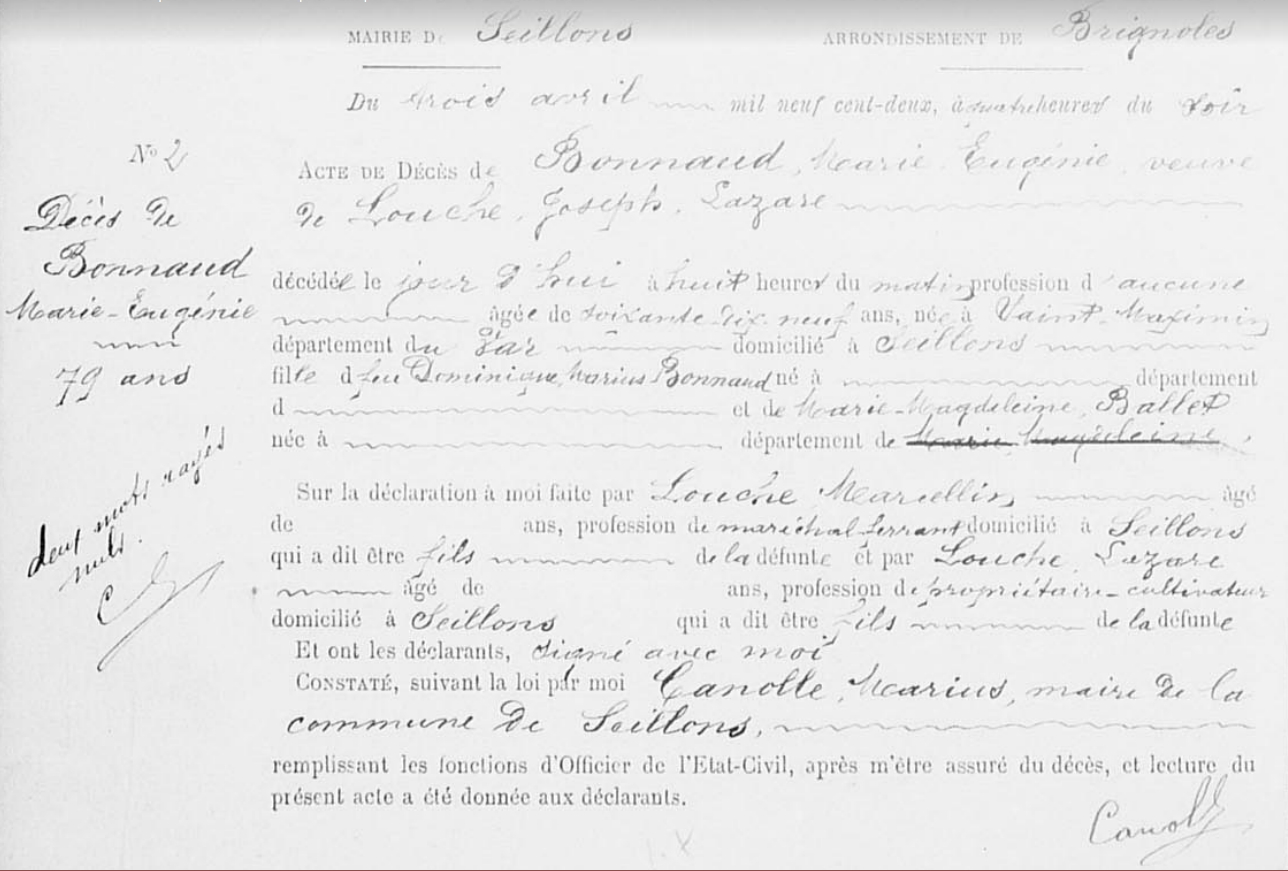 MAIRIE DE Seillons ARRONDISSEMENT DE Brignoles
Du trois avril mil neuf cent-deux, à quatre heures du soir
N° 2
ACTE DE DÉCÈS de Bonnaud, Marie Eugénie, veuve
de Louche, Joseph, Lazare
Décès de
Bonnaud
Marie-Eugénie
79 ans
décédée le jour d'hui à huit heures du matin profession d'aucune
âgée de soixante-dix-neuf ans, née à Saint-Maximin
département du Var domicilié à Seillons
fille d feu Dominique, Marius Bonnaud né à département
d et de Marie-Magdeleine, Ballet
née à département de Marie Magdeleine,
deux mots rayés
nuls.
Sur la déclaration à moi faite par Louche Marcellin âgé
de ans, profession de maréchal ferrant domicilié à Seillons
qui a dit être fils de la défunte et par Louche, Lazare
âgé de ans, profession de propriétaire-cultivateur
domicilié à Seillons qui a dit être fils de la défunte
Et ont les déclarants, signé avec moi
CONSTATÉ, suivant la loi par moi Canolle, Marius, maire de la
commune de Seillons,
remplissant les fonctions d'Officier de l'Etat-Civil, après m'être assuré du décès, et lecture du
présent acte a été donnée aux déclarants.